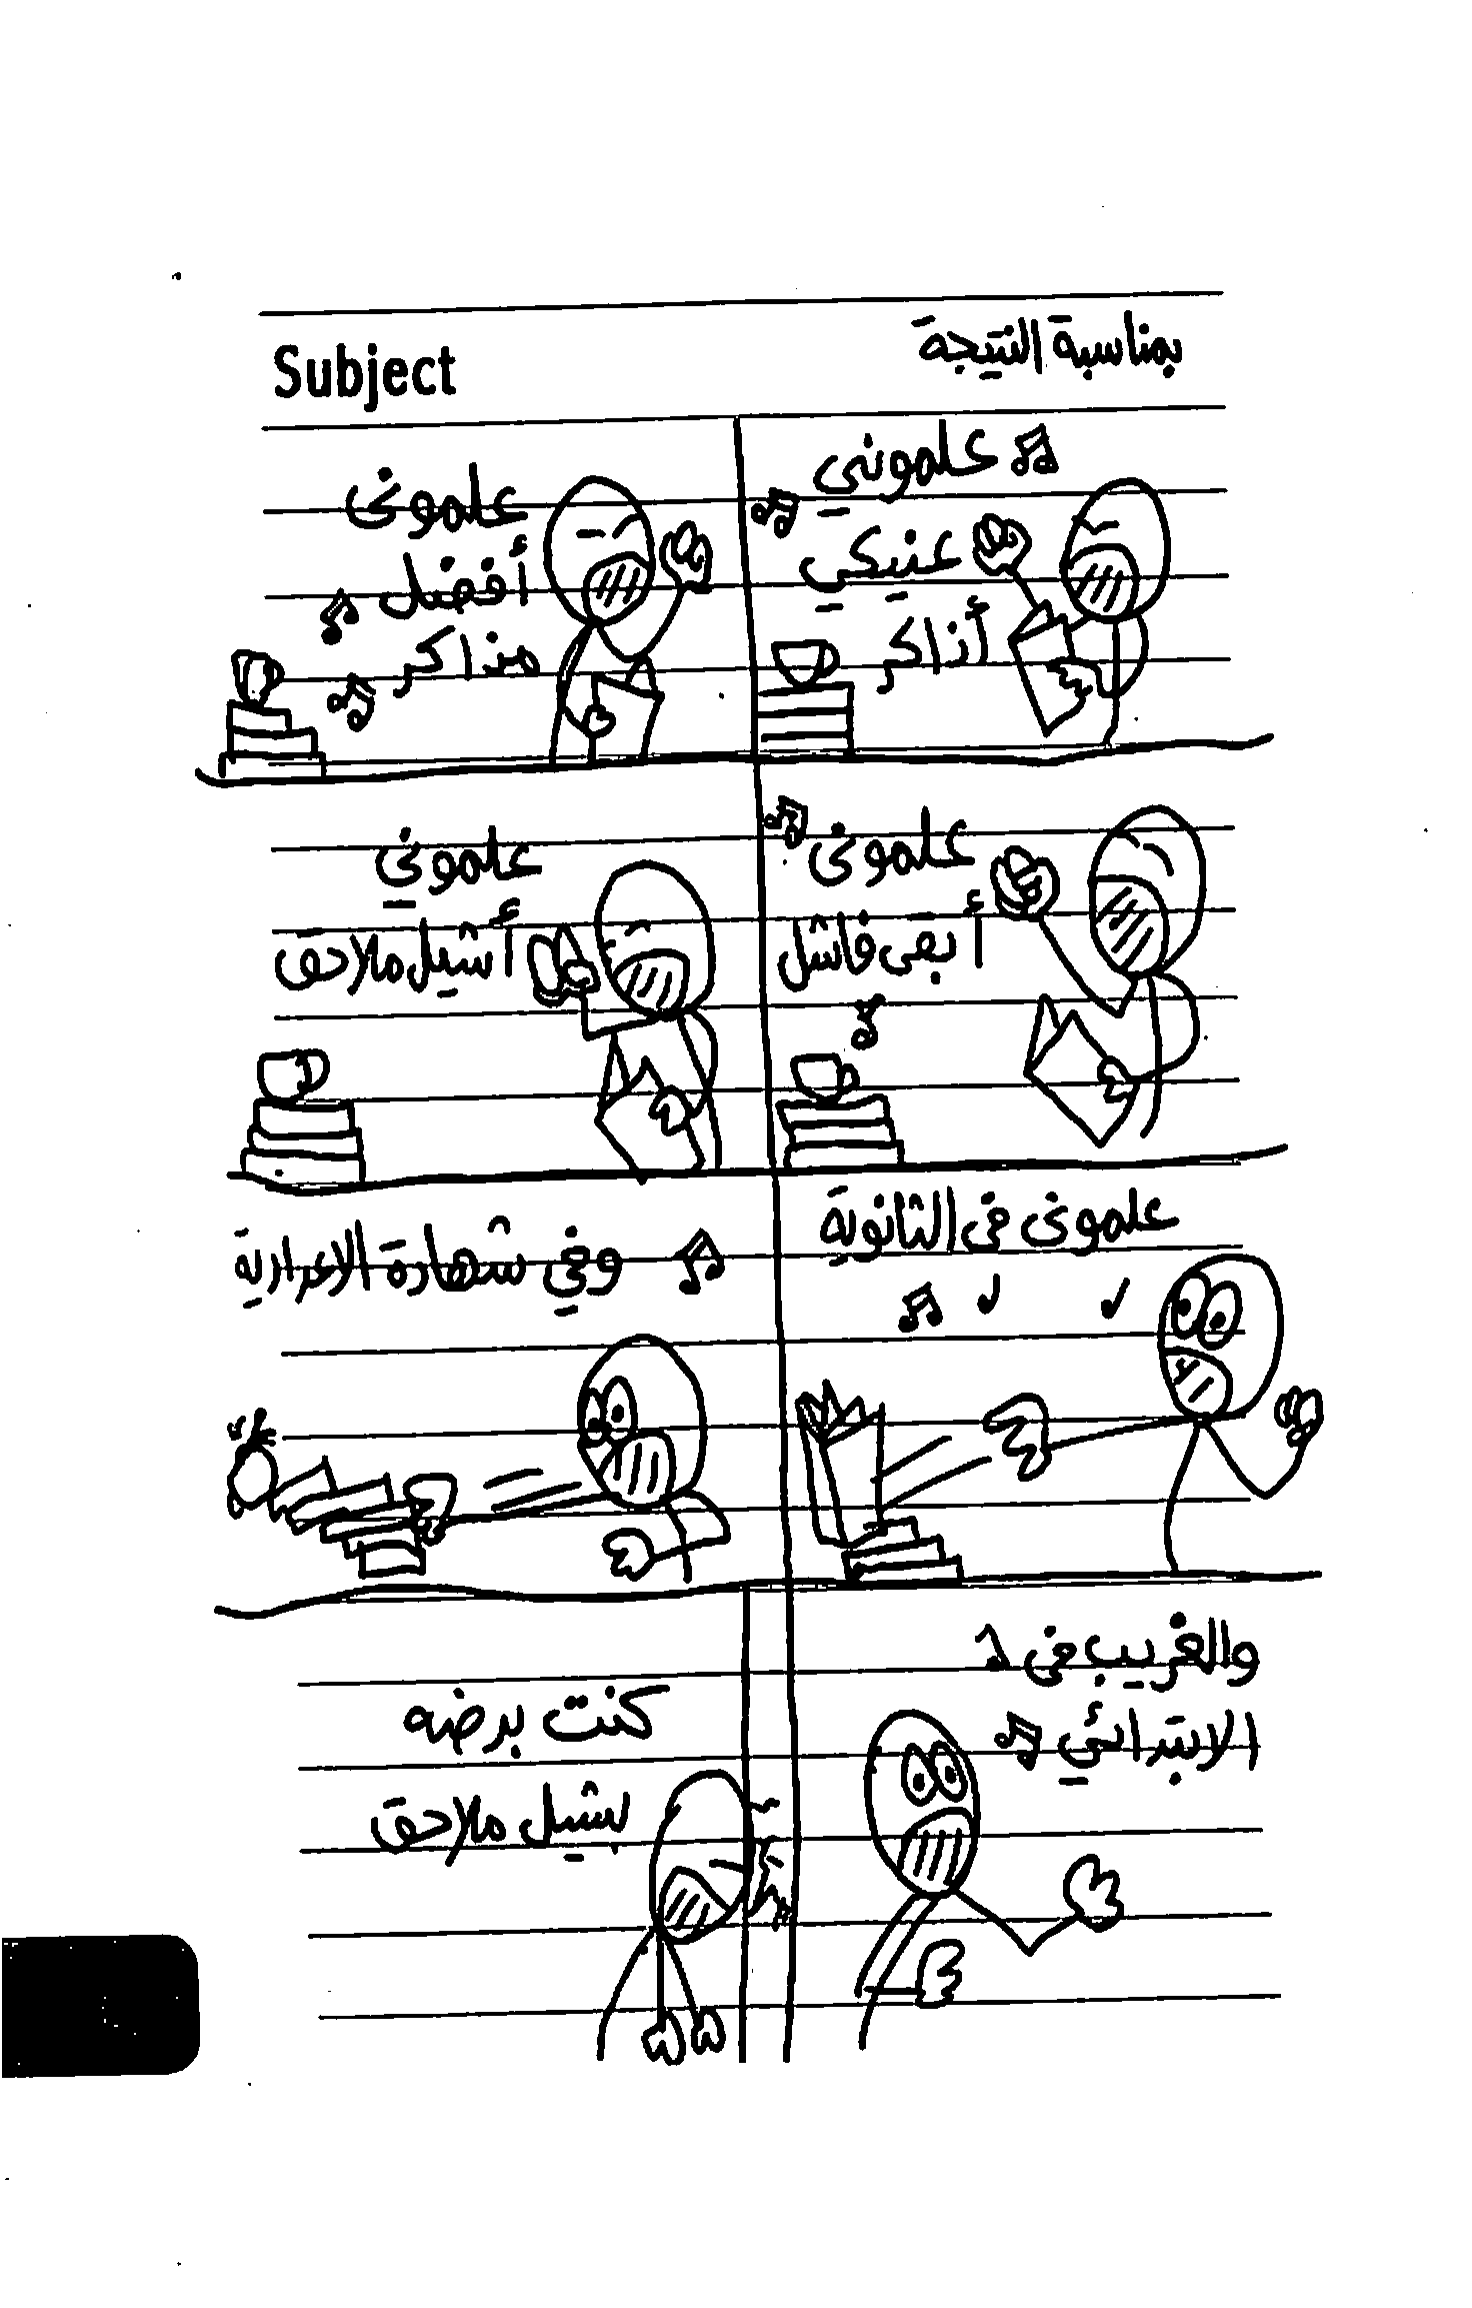 بمناسبة النتيجة
Subject
علموني
عنيكي
أذاكر
علموني
أفضل
مذاكر
علموني
أبقى فاشل
علموني
أشيل ملاحق
علموني في الثانوية
وفي شهادة الإعدادية
والغريب في
الابتدائي
كنت برضه
بشيل ملاحق